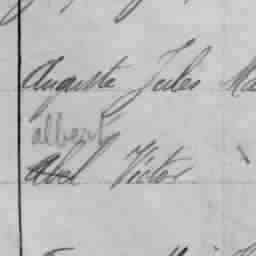 Auguste Jules Ma
albert
Abel Victor